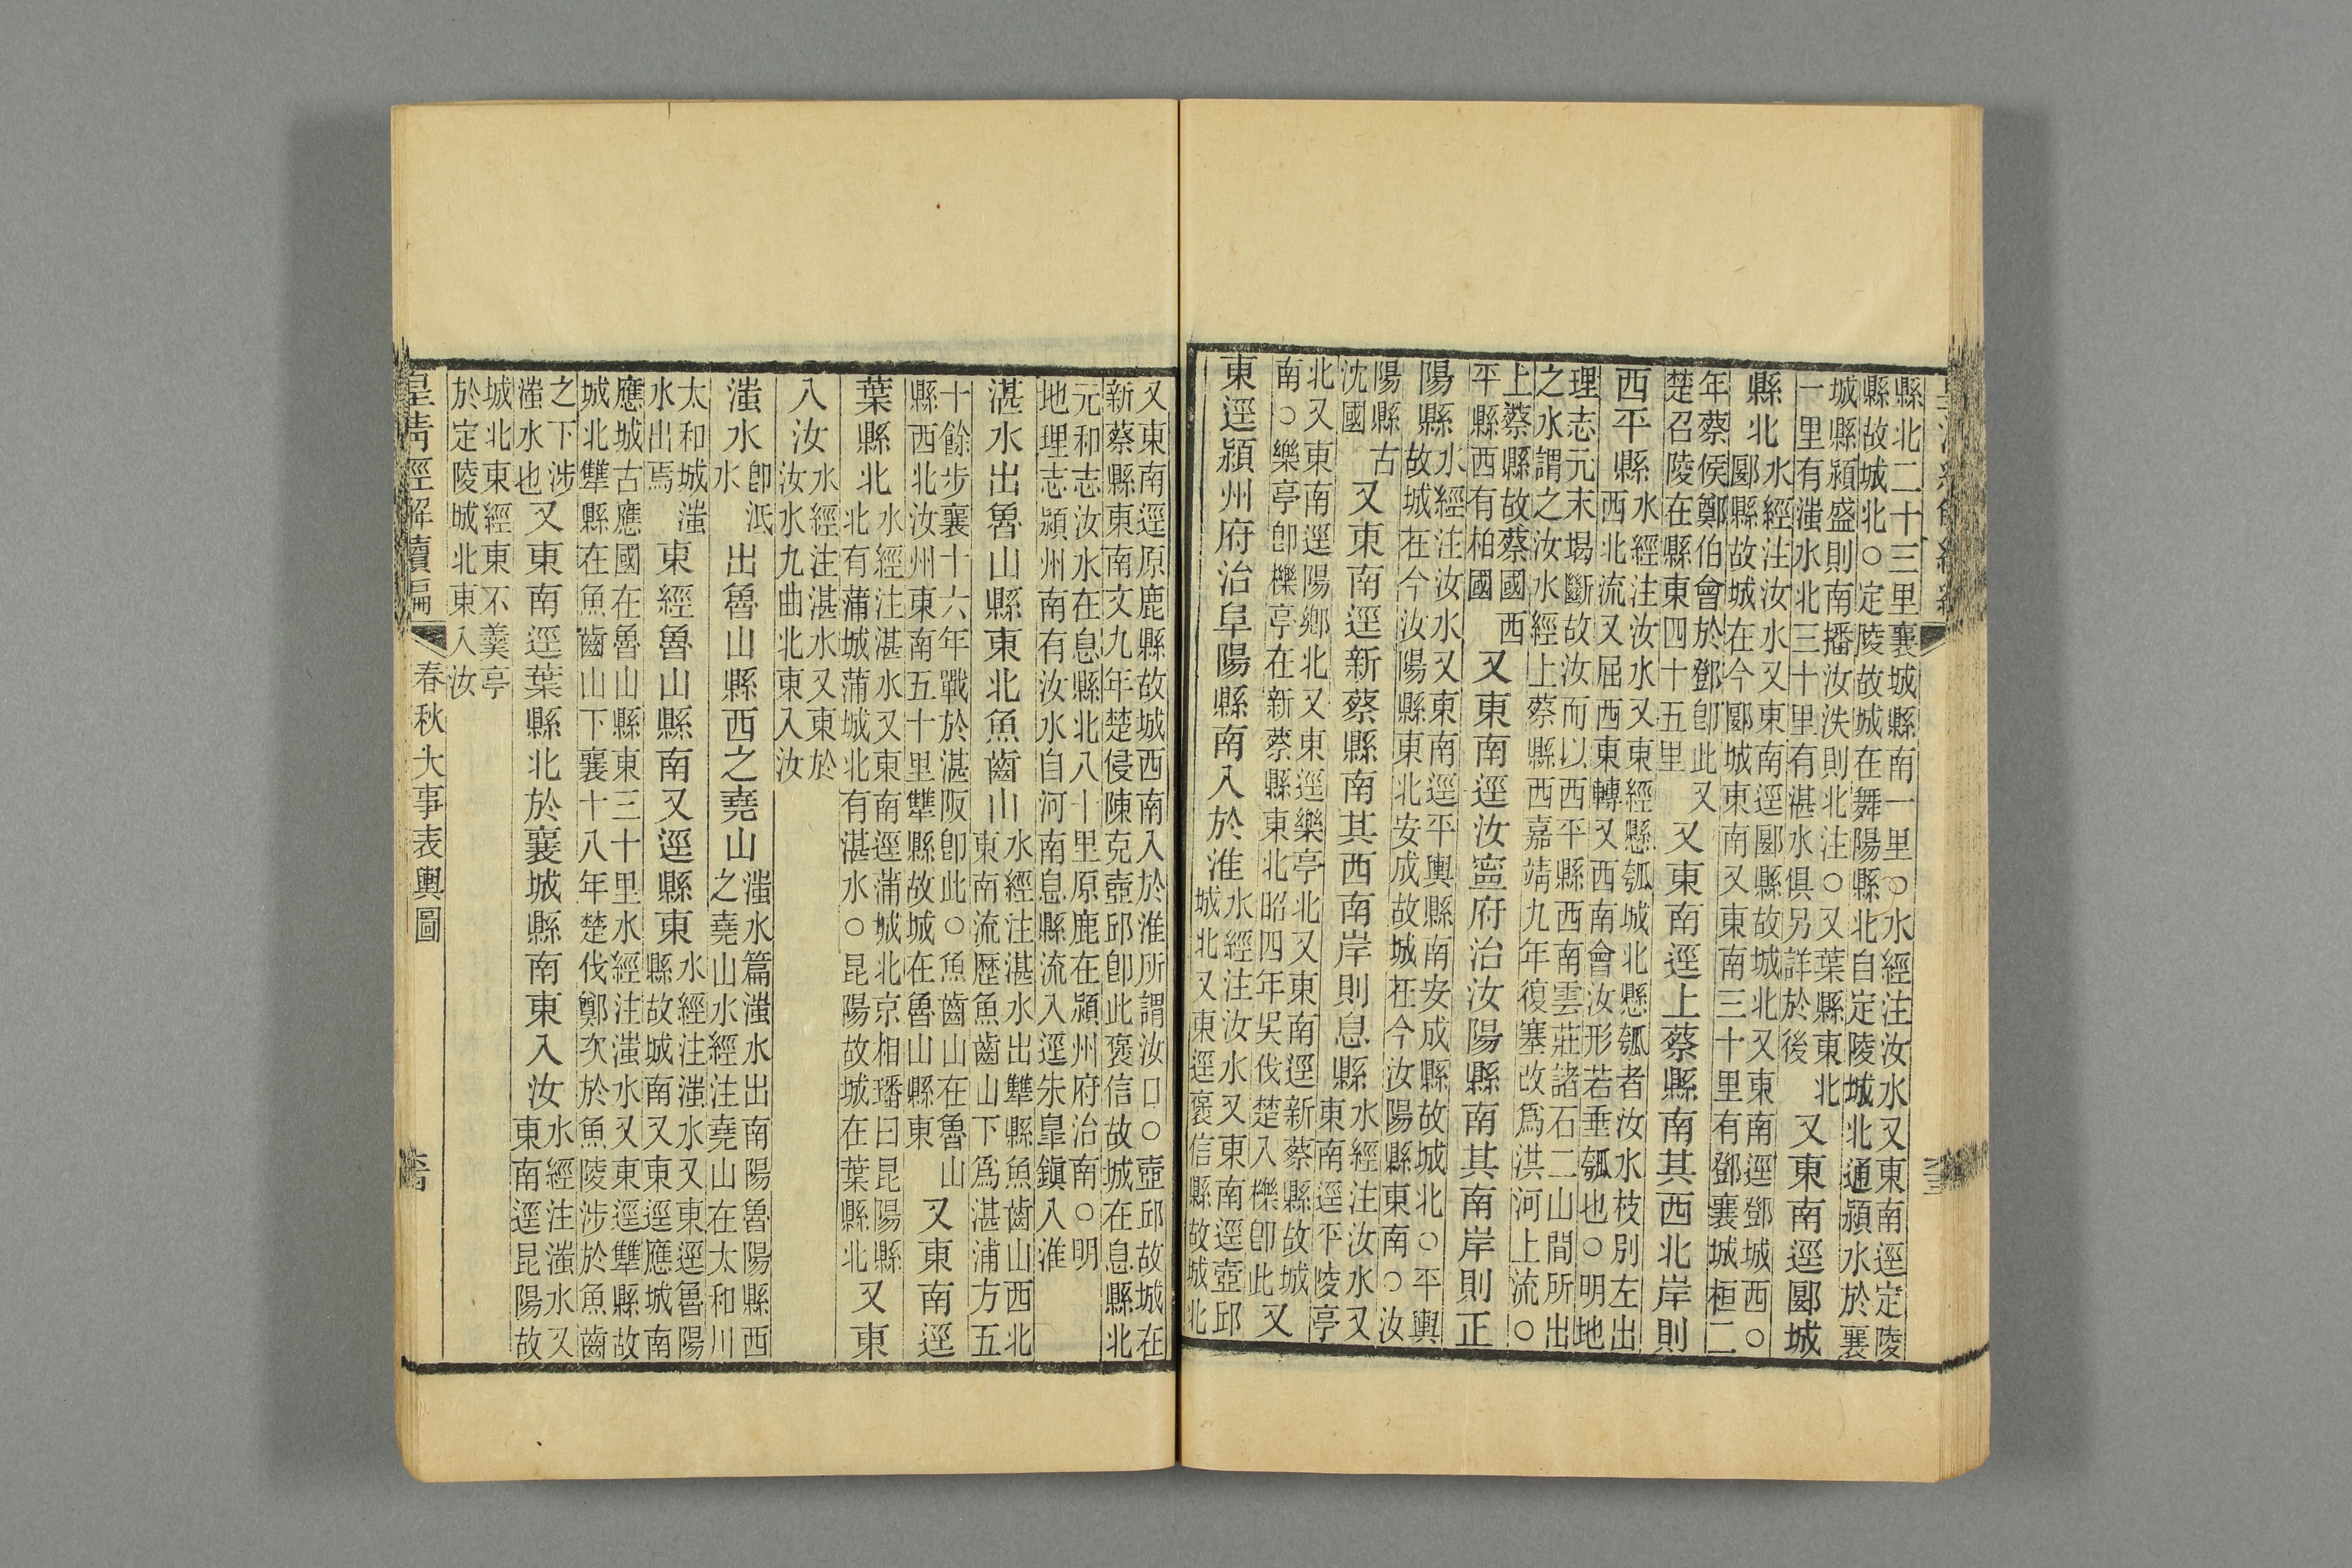 縣北二十三里襄城縣南一里○水經注汝水又東南逕定陵
縣故城北○定陵故城在舞陽縣北自定陵城北通潁水於襄
城縣潁盛則南播汝泆則北注○又葉縣東北
一里有滍水北三十里有湛水俱另詳於後
又東南逕郾城
縣北
水經注汝水又東南逕郾縣故城北又東南逕鄧城西○
郾縣故城在今郾城東南又東南三十里有鄧襄城桓二
年蔡侯鄭伯會於鄧卽此又
楚召陵在縣東四十五里
又東南逕上蔡縣南其西北岸則
西平縣
水經注汝水又東經懸瓠城北懸瓠者汝水枝別左出
西北流又屈西東轉又西南會汝形若垂瓠也○明地
理志元末堨斷故汝而以西平縣西南雲莊諸石二山間所出
之水謂之汝水經上蔡縣西嘉靖九年復塞改爲洪河上流○
上蔡縣故蔡國西
平縣西有柏國
又東南逕汝寧府治汝陽縣南其南岸則正
陽縣
水經注汝水又東南逕平輿縣南安成縣故城北○平輿
故城在今汝陽縣東北安成故城在今汝陽縣東南○汝
陽縣古
沈國
又東南逕新蔡縣南其西南岸則息縣
水經注汝水又
東南逕平陵亭
北又東南逕陽鄉北又東逕樂亭北又東南逕新蔡縣故城
南○樂亭卽櫟亭在新蔡縣東北昭四年吳伐楚入櫟卽此
又
東逕潁州府治阜陽縣南入於淮
水經注汝水又東南逕壺邱
城北又東逕褒信縣故城北
又東南逕原鹿縣故城西南入於淮所謂汝口○壺邱故城在
新蔡縣東南文九年楚侵陳克壺邱卽此褒信故城在息縣北
元和志汝水在息縣北八十里原鹿在潁州府治南○明
地理志潁州南有汝水自河南息縣流入逕朱皐鎮入淮
湛水出魯山縣東北魚齒山
水經注湛水出犨縣魚齒山西北
東南流歷魚齒山下爲湛浦方五
十餘步襄十六年戰於湛阪卽此○魚齒山在魯山
縣西北汝州東南五十里犨縣故城在魯山縣東
又東南逕
葉縣北
水經注湛水又東南逕蒲城北京相璠曰昆陽縣
北有蒲城蒲城北有湛水○昆陽故城在葉縣北
又東
入汝
水經注湛水又東於
汝水九曲北東入汝
滍水
卽泜
水
出魯山縣西之堯山
滍水篇滍水出南陽魯陽縣西
之堯山水經注堯山在太和川
太和城滍
水出焉
東經魯山縣南又逕縣東
水經注滍水又東逕魯陽
縣故城南又東逕應城南
應城古應國在魯山縣東三十里水經注滍水又東逕犨縣故
城北犨縣在魚齒山下襄十八年楚伐鄭次於魚陵涉於魚齒
之下涉
滍水也
又東南逕葉縣北於襄城縣南東入汝
水經注滍水又
東南逕昆陽故
城北東經東不羹亭
於定陵城北東入汝
皇清經解續編
春秋大事表輿圖